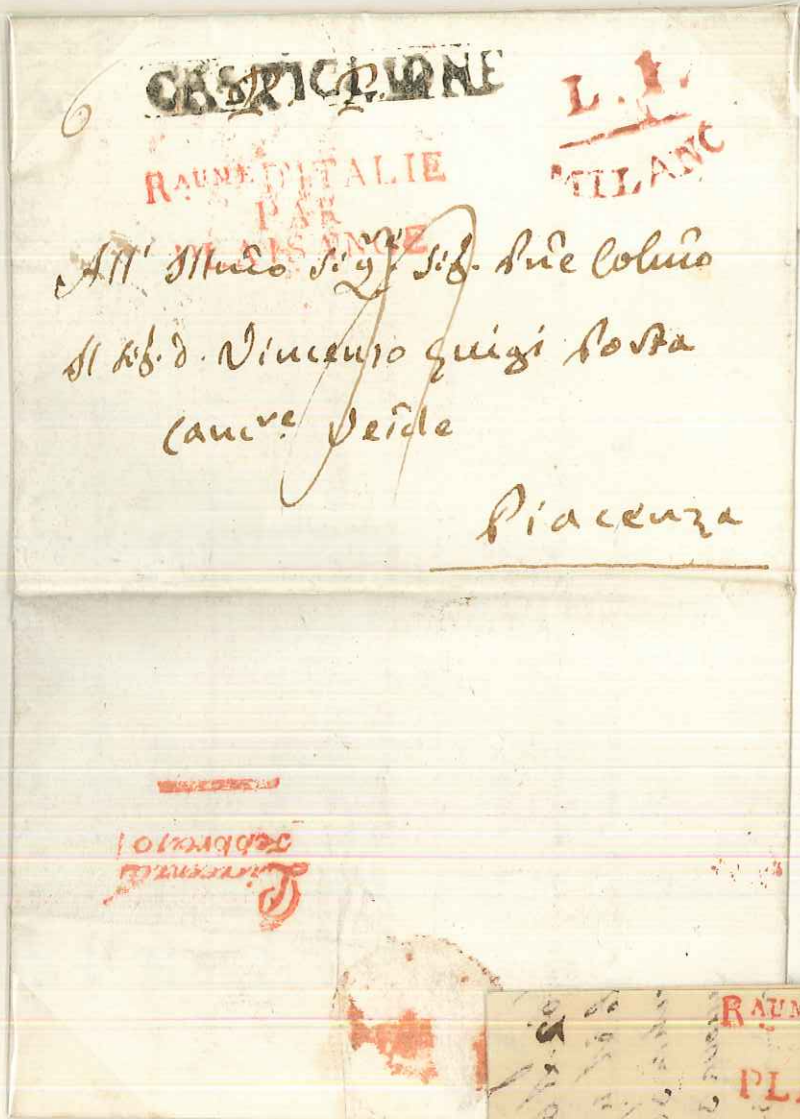 CASTIGLIONE
L. I.
MILANO
6
RAUME D'ITALIE
PAR
PLAISANCE
All' Illmo Sigr Sig. Pne Colmo
Il Sig. D. Vincenzo Luigi Posta
Cancre
Piacenza
Piacenza
Febbraio
RAUM
PL